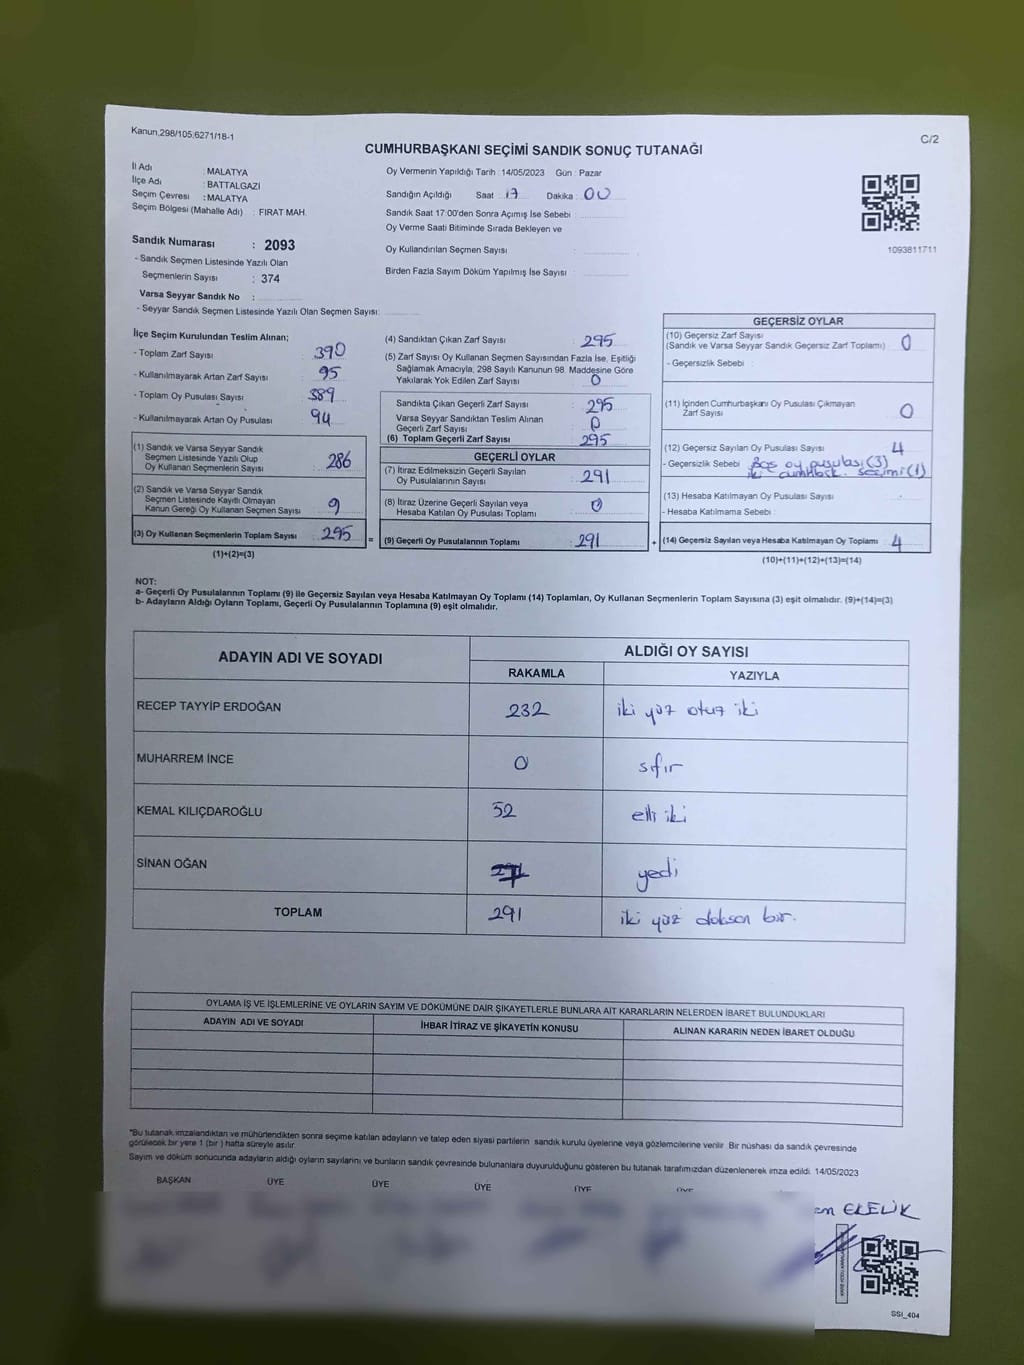 Kanun,298/105;6271/18-1
C/2
CUMHURBAŞKANI SEÇİMİ SANDIK SONUÇ TUTANAĞI
İl Adı : MALATYA
İlçe Adı : BATTALGAZİ
Seçim Çevresi : MALATYA
Seçim Bölgesi (Mahalle Adı) : FIRAT MAH.
Sandık Numarası : 2093
- Sandık Seçmen Listesinde Yazılı Olan
Seçmenlerin Sayısı : 374
Varsa Seyyar Sandık No :
- Seyyar Sandık Seçmen Listesinde Yazılı Olan Seçmen Sayısı:
Oy Vermenin Yapıldığı Tarih : 14/05/2023 Gün : Pazar
Sandığın Açıldığı Saat 17 Dakika 00
Sandık Saat 17:00'den Sonra Açımış İse Sebebi :
Oy Verme Saati Bitiminde Sırada Bekleyen ve
Oy Kullandırılan Seçmen Sayısı :
Birden Fazla Sayım Döküm Yapılmış İse Sayısı :
1093811711
İlçe Seçim Kurulundan Teslim Alınan;
- Toplam Zarf Sayısı : 390
- Kullanılmayarak Artan Zarf Sayısı : 95
- Toplam Oy Pusulası Sayısı : 389
- Kullanılmayarak Artan Oy Pusulası : 94
(1) Sandık ve Varsa Seyyar Sandık
Seçmen Listesinde Yazılı Olup
Oy Kullanan Seçmenlerin Sayısı : 286
(2) Sandık ve Varsa Seyyar Sandık
Seçmen Listesinde Kayıtlı Olmayan
Kanun Gereği Oy Kullanan Seçmen Sayısı : 9
(3) Oy Kullanan Seçmenlerin Toplam Sayısı : 295
(1)+(2)=(3)
(4) Sandıktan Çıkan Zarf Sayısı : 295
(5) Zarf Sayısı Oy Kullanan Seçmen Sayısından Fazla İse, Eşitliği
Sağlamak Amacıyla, 298 Sayılı Kanunun 98. Maddesine Göre
Yakılarak Yok Edilen Zarf Sayısı : 0
Sandıkta Çıkan Geçerli Zarf Sayısı : 295
Varsa Seyyar Sandıktan Teslim Alınan
Geçerli Zarf Sayısı : 0
(6) Toplam Geçerli Zarf Sayısı : 295
GEÇERLİ OYLAR
(7) İtiraz Edilmeksizin Geçerli Sayılan
Oy Pusulalarının Sayısı : 291
(8) İtiraz Üzerine Geçerli Sayılan veya
Hesaba Katılan Oy Pusulası Toplamı : 0
= (9) Geçerli Oy Pusulalarının Toplamı : 291
GEÇERSİZ OYLAR
(10) Geçersiz Zarf Sayısı
(Sandık ve Varsa Seyyar Sandık Geçersiz Zarf Toplamı) : 0
- Geçersizlik Sebebi :
(11) İçinden Cumhurbaşkanı Oy Pusulası Çıkmayan
Zarf Sayısı : 0
(12) Geçersiz Sayılan Oy Pusulası Sayısı : 4
- Geçersizlik Sebebi : Boş oy pusulası (3)
iki cumhbaşk. seçimi (1)
(13) Hesaba Katılmayan Oy Pusulası Sayısı :
- Hesaba Katılmama Sebebi :
+ (14) Geçersiz Sayılan veya Hesaba Katılmayan Oy Toplamı : 4
(10)+(11)+(12)+(13)=(14)
NOT:
a- Geçerli Oy Pusulalarının Toplamı (9) ile Geçersiz Sayılan veya Hesaba Katılmayan Oy Toplamı (14) Toplamları, Oy Kullanan Seçmenlerin Toplam Sayısına (3) eşit olmalıdır. (9)+(14)=(3)
b- Adayların Aldığı Oyların Toplamı, Geçerli Oy Pusulalarının Toplamına (9) eşit olmalıdır.
ADAYIN ADI VE SOYADI
ALDIĞI OY SAYISI
RAKAMLA YAZIYLA
RECEP TAYYİP ERDOĞAN 232 iki yüz otuz iki
MUHARREM İNCE 0 sıfır
KEMAL KILIÇDAROĞLU 52 elli iki
SİNAN OĞAN yedi
TOPLAM 291 iki yüz doksan bir.
OYLAMA İŞ VE İŞLEMLERİNE VE OYLARIN SAYIM VE DÖKÜMÜNE DAİR ŞİKAYETLERLE BUNLARA AİT KARARLARIN NELERDEN İBARET BULUNDUKLARI
ADAYIN ADI VE SOYADI İHBAR İTİRAZ VE ŞİKAYETİN KONUSU ALINAN KARARIN NEDEN İBARET OLDUĞU
*Bu tutanak imzalandıktan ve mühürlendikten sonra seçime katılan adayların ve talep eden siyasi partilerin sandık kurulu üyelerine veya gözlemcilerine verilir. Bir nüshası da sandık çevresinde
görülecek bir yere 1 (bir) hafta süreyle asılır.
Sayım ve döküm sonucunda adayların aldığı oyların sayılarını ve bunların sandık çevresinde bulunanlara duyurulduğunu gösteren bu tutanak tarafımızdan düzenlenerek imza edildi. 14/05/2023
BAŞKAN ÜYE ÜYE ÜYE ÜYE ÜYE
SSI_404